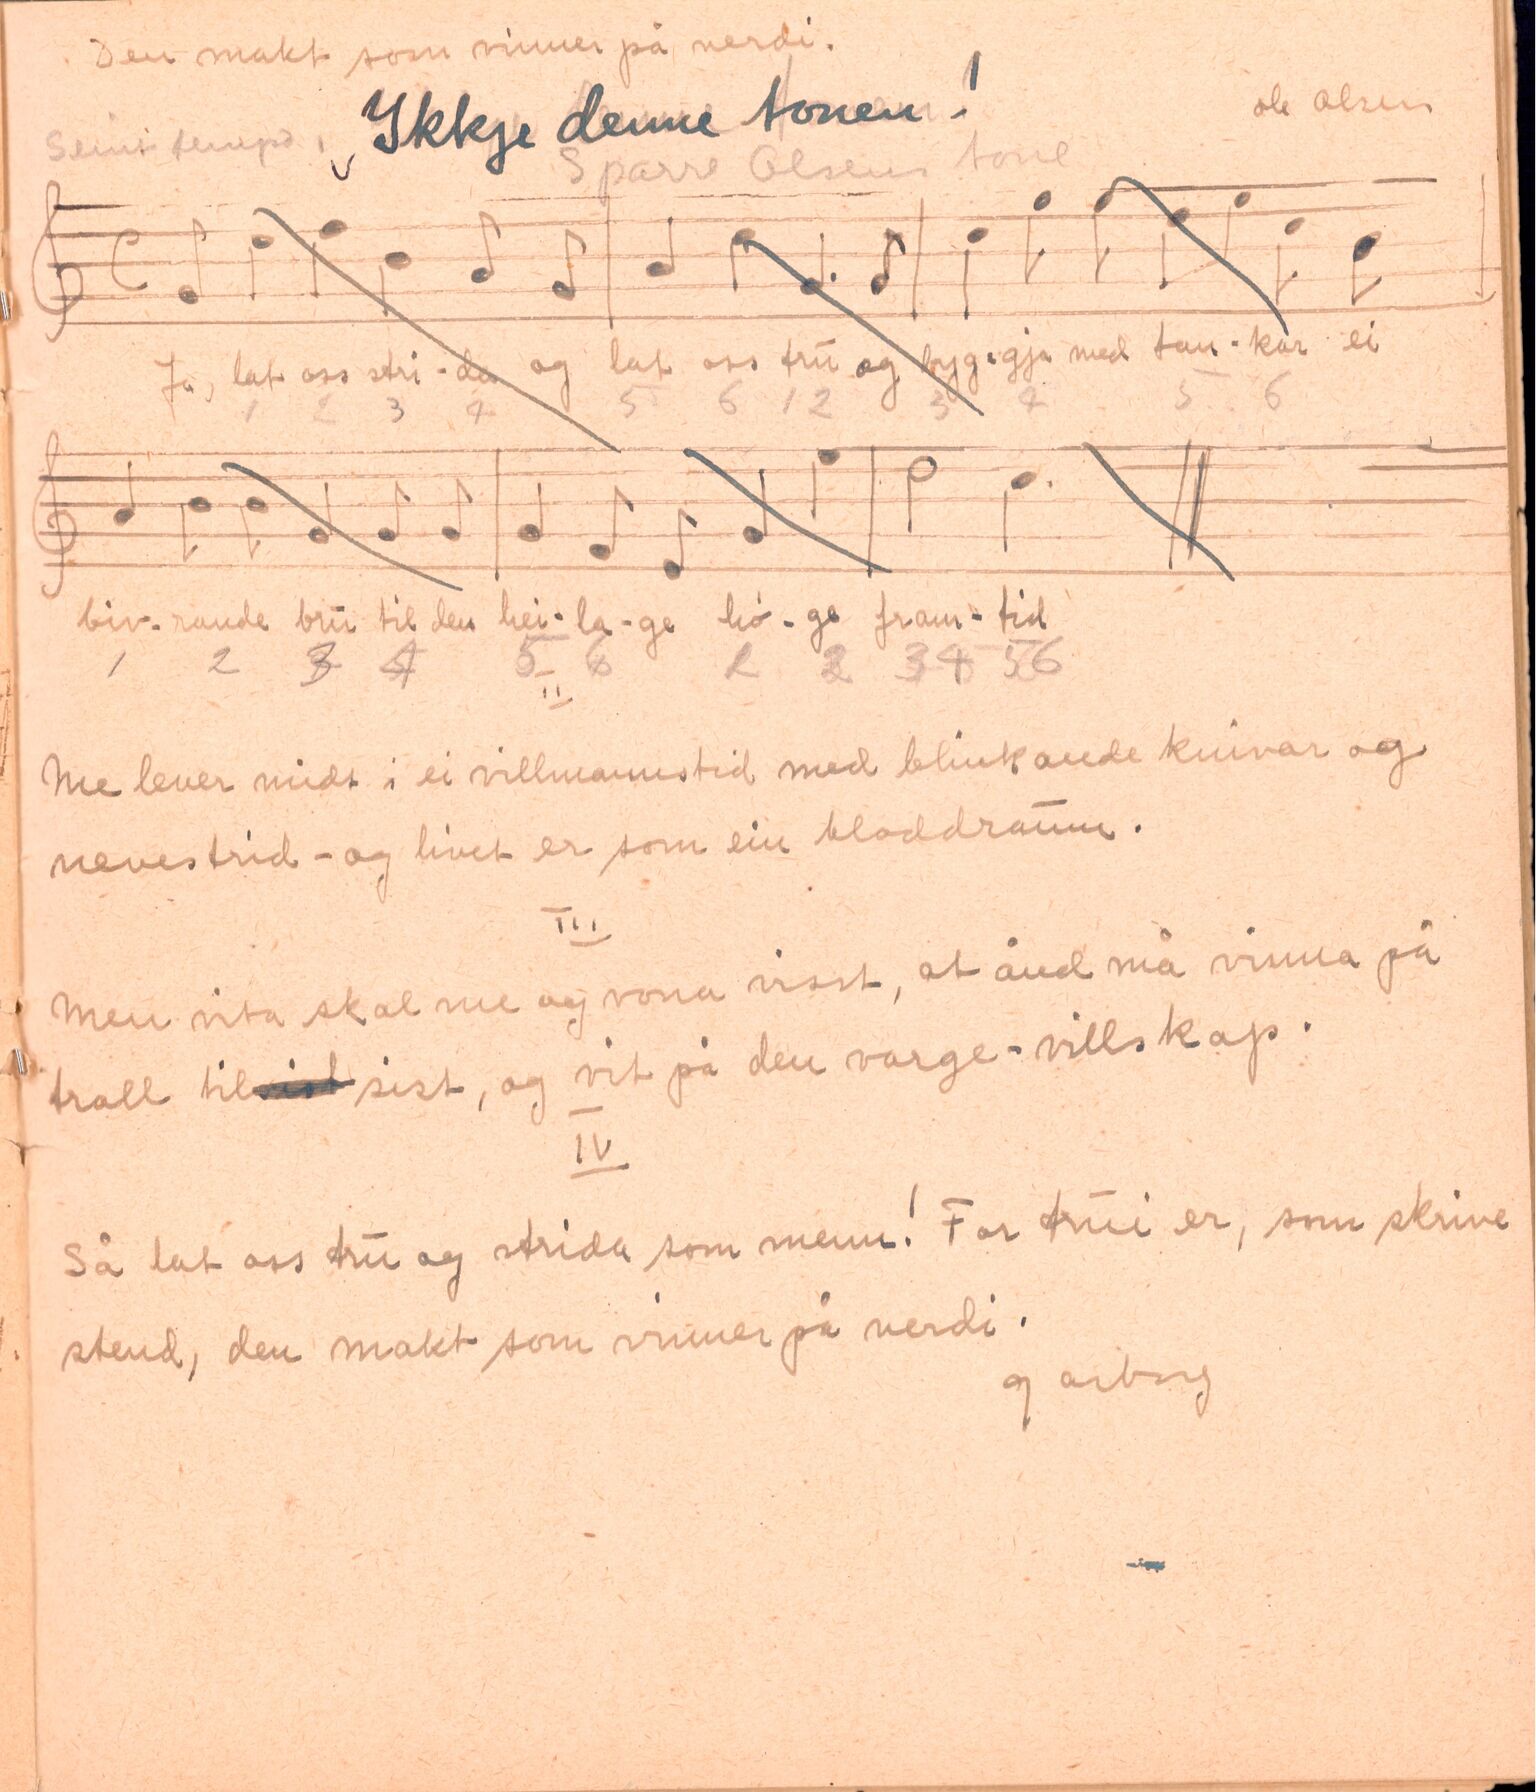 Den makt som vinner på verdi.
Ikkje denne tonen!
ole Olsen
Seint tempo.
Sparre Olsens tone
Ja, lat oss stri-da og lat oss trū og byg-gja med tan-kar ei
1 2 3 4 5 6 1 2 3 4 5 6
biv-rande brū til den hei-la-ge hö-ge fram-tid
1 2 3 4 5 6 1 2 3 4 5 6
II
Me lever midt i ei villmannstid med blinkande knivar og
nevestrid - og livet er som ein bloddraūm.
III
Men vita skal me og vona visst, at ånd må vinna på
troll til sist sist, og vit på den varge-villskap.
IV
Så lat oss trū og strida som menn! For trūi er, som skrive
stend, den makt som vinner på verdi.
garborg